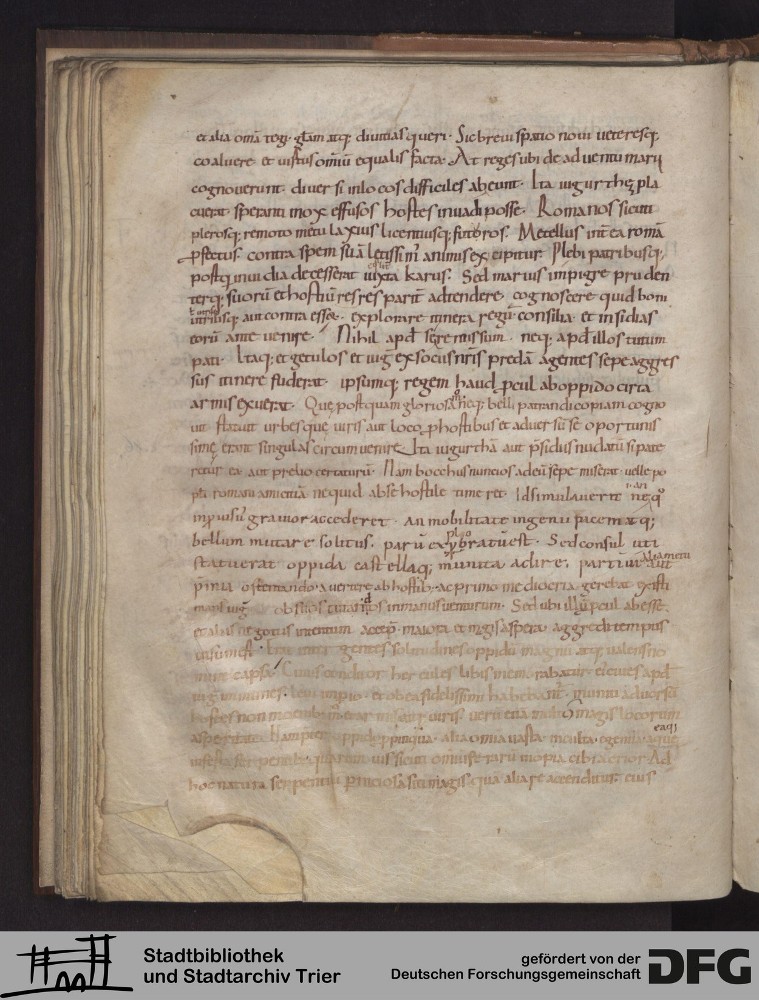 et alia om̄a tegi· gl̄am atq; divitias queri· Sic brevi spatio novi veteresq;
coaluere· et virtus omiū equalis facta· At reges ubi de adventu marii
cognoverunt· diversi in locos difficiles abeunt· Ita iugurthę pla
cuerat· speranti mox effusos hostes invadi posse· Romanos sicuti
plerosq; remoto metu laxius licentiusq; futuros· Metellus int̄ea romā
ꝓfectus· contra spem suā lętissim̄ animis excipitur· Plebi patribusq;
postq̄ invidia decesserat iuxta karus· Sed marius impigre pruden
terq; suorū et hostiū res pariter adtendere· cognoscere quid boni
utrisq; aut contra esset· explorare itinera regū· consilia· et insidias
eorū ante venire· Nihil apd̄ se remissum· neq; apd̄ illos tutum
pati· Itaq; et getulos et iuḡ ex sociis nr̄is predā agentes sepe aggres
sus itinere fuderat· ipsumq; regem haud ꝓcul ab oppido cirta
armis exuerat· Que postquam gloriosa neq; belli patrandi cogno
vit statuit urbes que viris aut loco ꝓ hostibus et adversū se oportunis
simę erant singulas circumvenire Ita iugurthā aut p̄sidiis nudatū si pate
retur ea· aut prelio certaturū· Nam bocchus nuncios ad eū sepe miserat· velle po
puli romani amicitiā ne quid ab se hostile timeret· Id simulaverit ne q°
inꝓvisū gravior accederet· An mobilitate ingenii pacem atq;
bellum mutare solitus· parū exploratū est· Sed consul uti
statuerat oppida castellaq; munita adire· partim vi alia metu aut
p̄mia ostentando avertere ab hostib; ac primo mediocria gerebat existi
mans iuḡ ob suos tutandos in manus venturum· Sed ubi illū ꝓcul abesse
et aliis negotiis intentum accep̄· maiora et magis aspera aggredi tempus
visum est· Erat inter ingentes solitudines oppidū magnū atq; valens no
mine capsa· Cuius conditor hercules libis memorabatur· eius cives apd̄
iuḡ immunes· levi imperio· et ob ea fidelissimi habebant̄· muniti adversū
hostes non moenibus modo et armis atq; viris· verū etiā multo magis locorum
asperitate· Nam preter oppido ꝓpinqua· alia omnia vasta· inculta· egentia aque eaq;
infesta serpentib; quarum vis sicuti omniū ferarū inopia cibi acrior Ad
hoc natura serpentiū ꝑniciosa siti magis quā alia re accenditur· eius
Stadtbibliothek
und Stadtarchiv Trier
gefördert von der
Deutschen Forschungsgemeinschaft
DFG